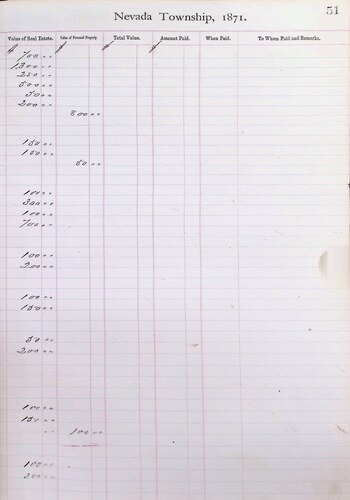 51
Nevada Township, 1871.
Value of Real Estate. Value of Personal Property. Total Value. Amount Paid. When Paid. To Whom Paid and Remarks.
700 "
1300 "
250 "
500 "
50 "
200 "
800 "
150 "
150 "
50 "
100 "
300 "
100 "
700 "
100 "
200 "
100 "
150 "
50 "
200 "
100 "
150 "
100 "
100 "
300 "